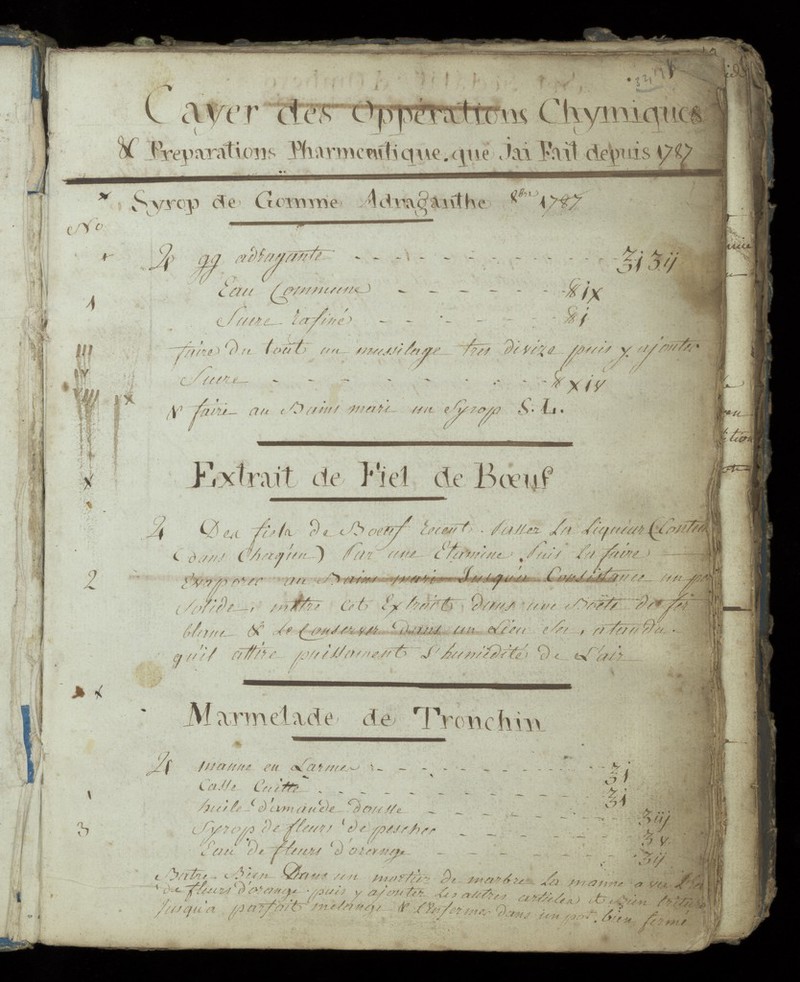 Cayer des Oppérations Chymiques
& Preparations Pharmceutique. que Jai Fait depuis 1787
Syrop de Gomme Adraganthe 8bre 1787
No
♃ gg adragante - - - - - - - - ℥i ʒij
1 Eau Commune - - - - - ℔ix
Sucre Rafiné - - - - - ℔i
faire du tout un mussilage tres divizé puis y ajouter
Sucre - - - - - - - - ℔xiv
& faire au Bains mari un Syrop S. L.
Extrait de Fiel de Bœuf
♃ Des fiels de Boeuf recent. Passez La Liqueur (Conten
dans Chaqu'un) Par une Etamine, Puis La faire
2 Evaporer au Bains mari Jusqu'a Consistance un p
Solide, mettre cet Extrait dans une Boëte de fer
blanc & Le Conserver dans un Lieu Sec, atandu
qu'il attire puissament L'humidité de L'air
Marmelade de Tronchin
♃ manne en Larmes - - - - - - ℥i
Casse Cuitte - - - - - - ℥i
huile d'amande dousse - - - - -
3 Syrop de fleurs de pescher - - - - - ʒiij
Eau de fleurs d'orange - - - - -
Batre Bien Dans un mortier de marbre La manne avec L'
de fleurs d'orange puis y ajouter Les autres articles et Bien triturer
Jusqu'a parfait melange & L'Enfermer dans un pot bien fermé